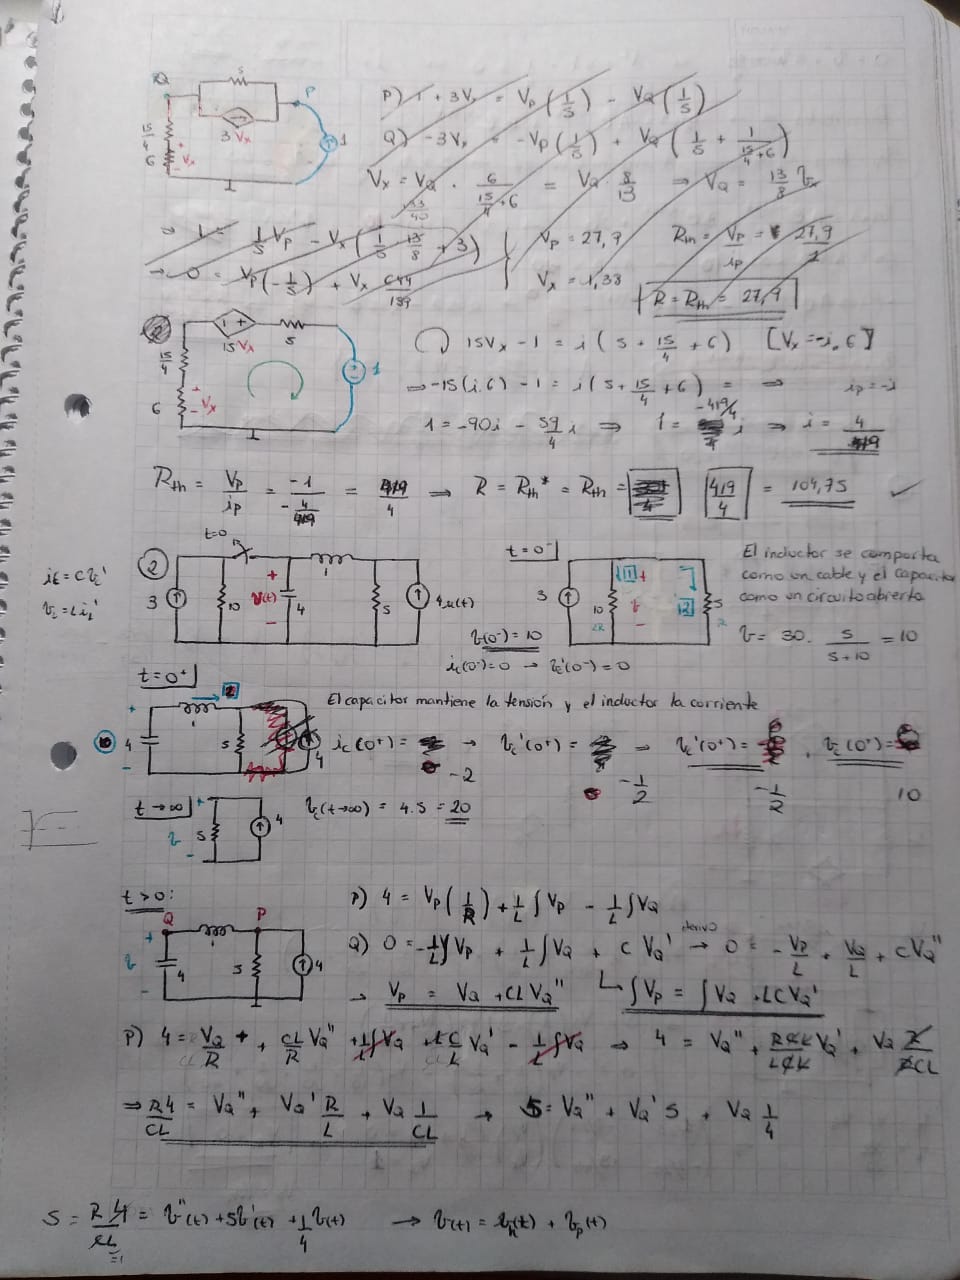 Q
5
P
3Vx
15/4
6
Vx
1
P) 1 + 3Vx = Vp(1/5) - VQ(1/5)
Q) -3Vx = -Vp(1/5) + VQ(1/5 + 1/(15/4+6))
Vx = VQ · 6/(15/4+6) = VQ 8/13 ⇒ VQ = 13/8 Vx
Vp = 27,9
Vx = 1,38
Rth = Vp/ip = 27,9/1
R = Rth = 27,9
15Vx
5
15/4
6
Vx
1
15Vx - 1 = i(5 + 15/4 + 6) [Vx = -i.6]
⇒ -15(i.6) - 1 = i(5 + 15/4 + 6) = ⇒ ip = -i
1 = -90i - 59/4 i ⇒ 1 = -419/4 i ⇒ i = 4/419
Rth = Vp/ip = -1/(-4/419) = 419/4 ⇒ R = Rth* = Rth = 419/4 = 104,75 ✓
iC = C vC'
vL = L iL'
2
t=0
3
10
v(t)
4
1
5
4u(t)
t=0⁻
3
10
v
5
1
2
v(0⁻) = 10
ic(0⁻) = 0 → vc'(0⁻) = 0
El inductor se comporta
como un cable y el capacitor
como un circuito abierto
v = 30 · 5/(5+10) = 10
t=0⁺
El capacitor mantiene la tensión y el inductor la corriente
10
4
1
2
5
4
ic(0⁺) = -2 → vc'(0⁺) = -1/2 → vc'(0⁺) = -1/2 , vc(0⁺) = 10
t→∞
v
5
4
vc(t→∞) = 4.5 = 20
t>0:
Q
P
v
4
1
5
4
P) 4 = Vp(1/R) + 1/L ∫Vp - 1/L ∫VQ
Q) 0 = -1/L ∫Vp + 1/L ∫VQ + C VQ' derivo → 0 = -Vp/L + VQ/L + C VQ''
→ Vp = VQ + CL VQ'' ↳ ∫Vp = ∫VQ + LC VQ'
P) 4 = VQ/R + CL/R VQ'' + 1/L ∫VQ + LC/L VQ' - 1/L ∫VQ ⇒ 4 = VQ'' + RCL/LCL VQ' + VQ R/RCL
⇒ R4/CL = VQ'' + VQ' R/L + VQ 1/CL → 5 = VQ'' + VQ' 5 + VQ 1/4
5 = R4/CL = v''(t) + 5v'(t) + 1/4 v(t) → v(t) = vh(t) + vp(t)